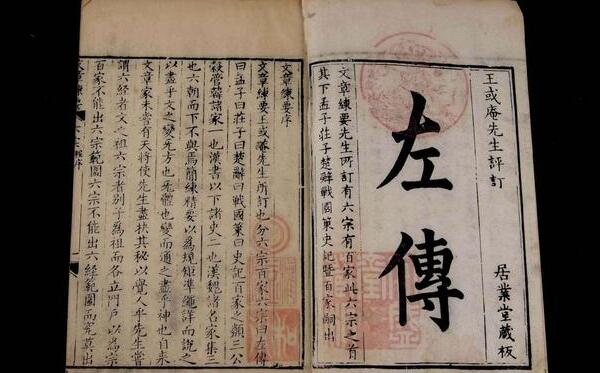 王或庵先生評訂
居業堂藏板
左傳
文章練要先生所訂有六宗有百家此六宗之首
其下孟子莊子楚辭戰國策史記暨百家嗣出
文章練要序
文章練要王或庵先生所訂也分六宗百家六宗曰左傳
曰孟子曰莊子曰楚辭曰戰國策曰史記百家之類三公
穀管韓諸家一也漢書以下諸史二也漢魏諸名家集三
也六朝而下不與焉簡練精要以為規矩準繩詳而說之
以盡乎文之變先方也死體也變而通之盡乎神也自来
文章家未嘗有天將使先生盡抉其秘以嘗人乎先生嘗
謂六經者文之祖六宗者別子為祖而各立門戶以為宗
百家不能出六宗範圍六宗不能出六經範圍而究莫出